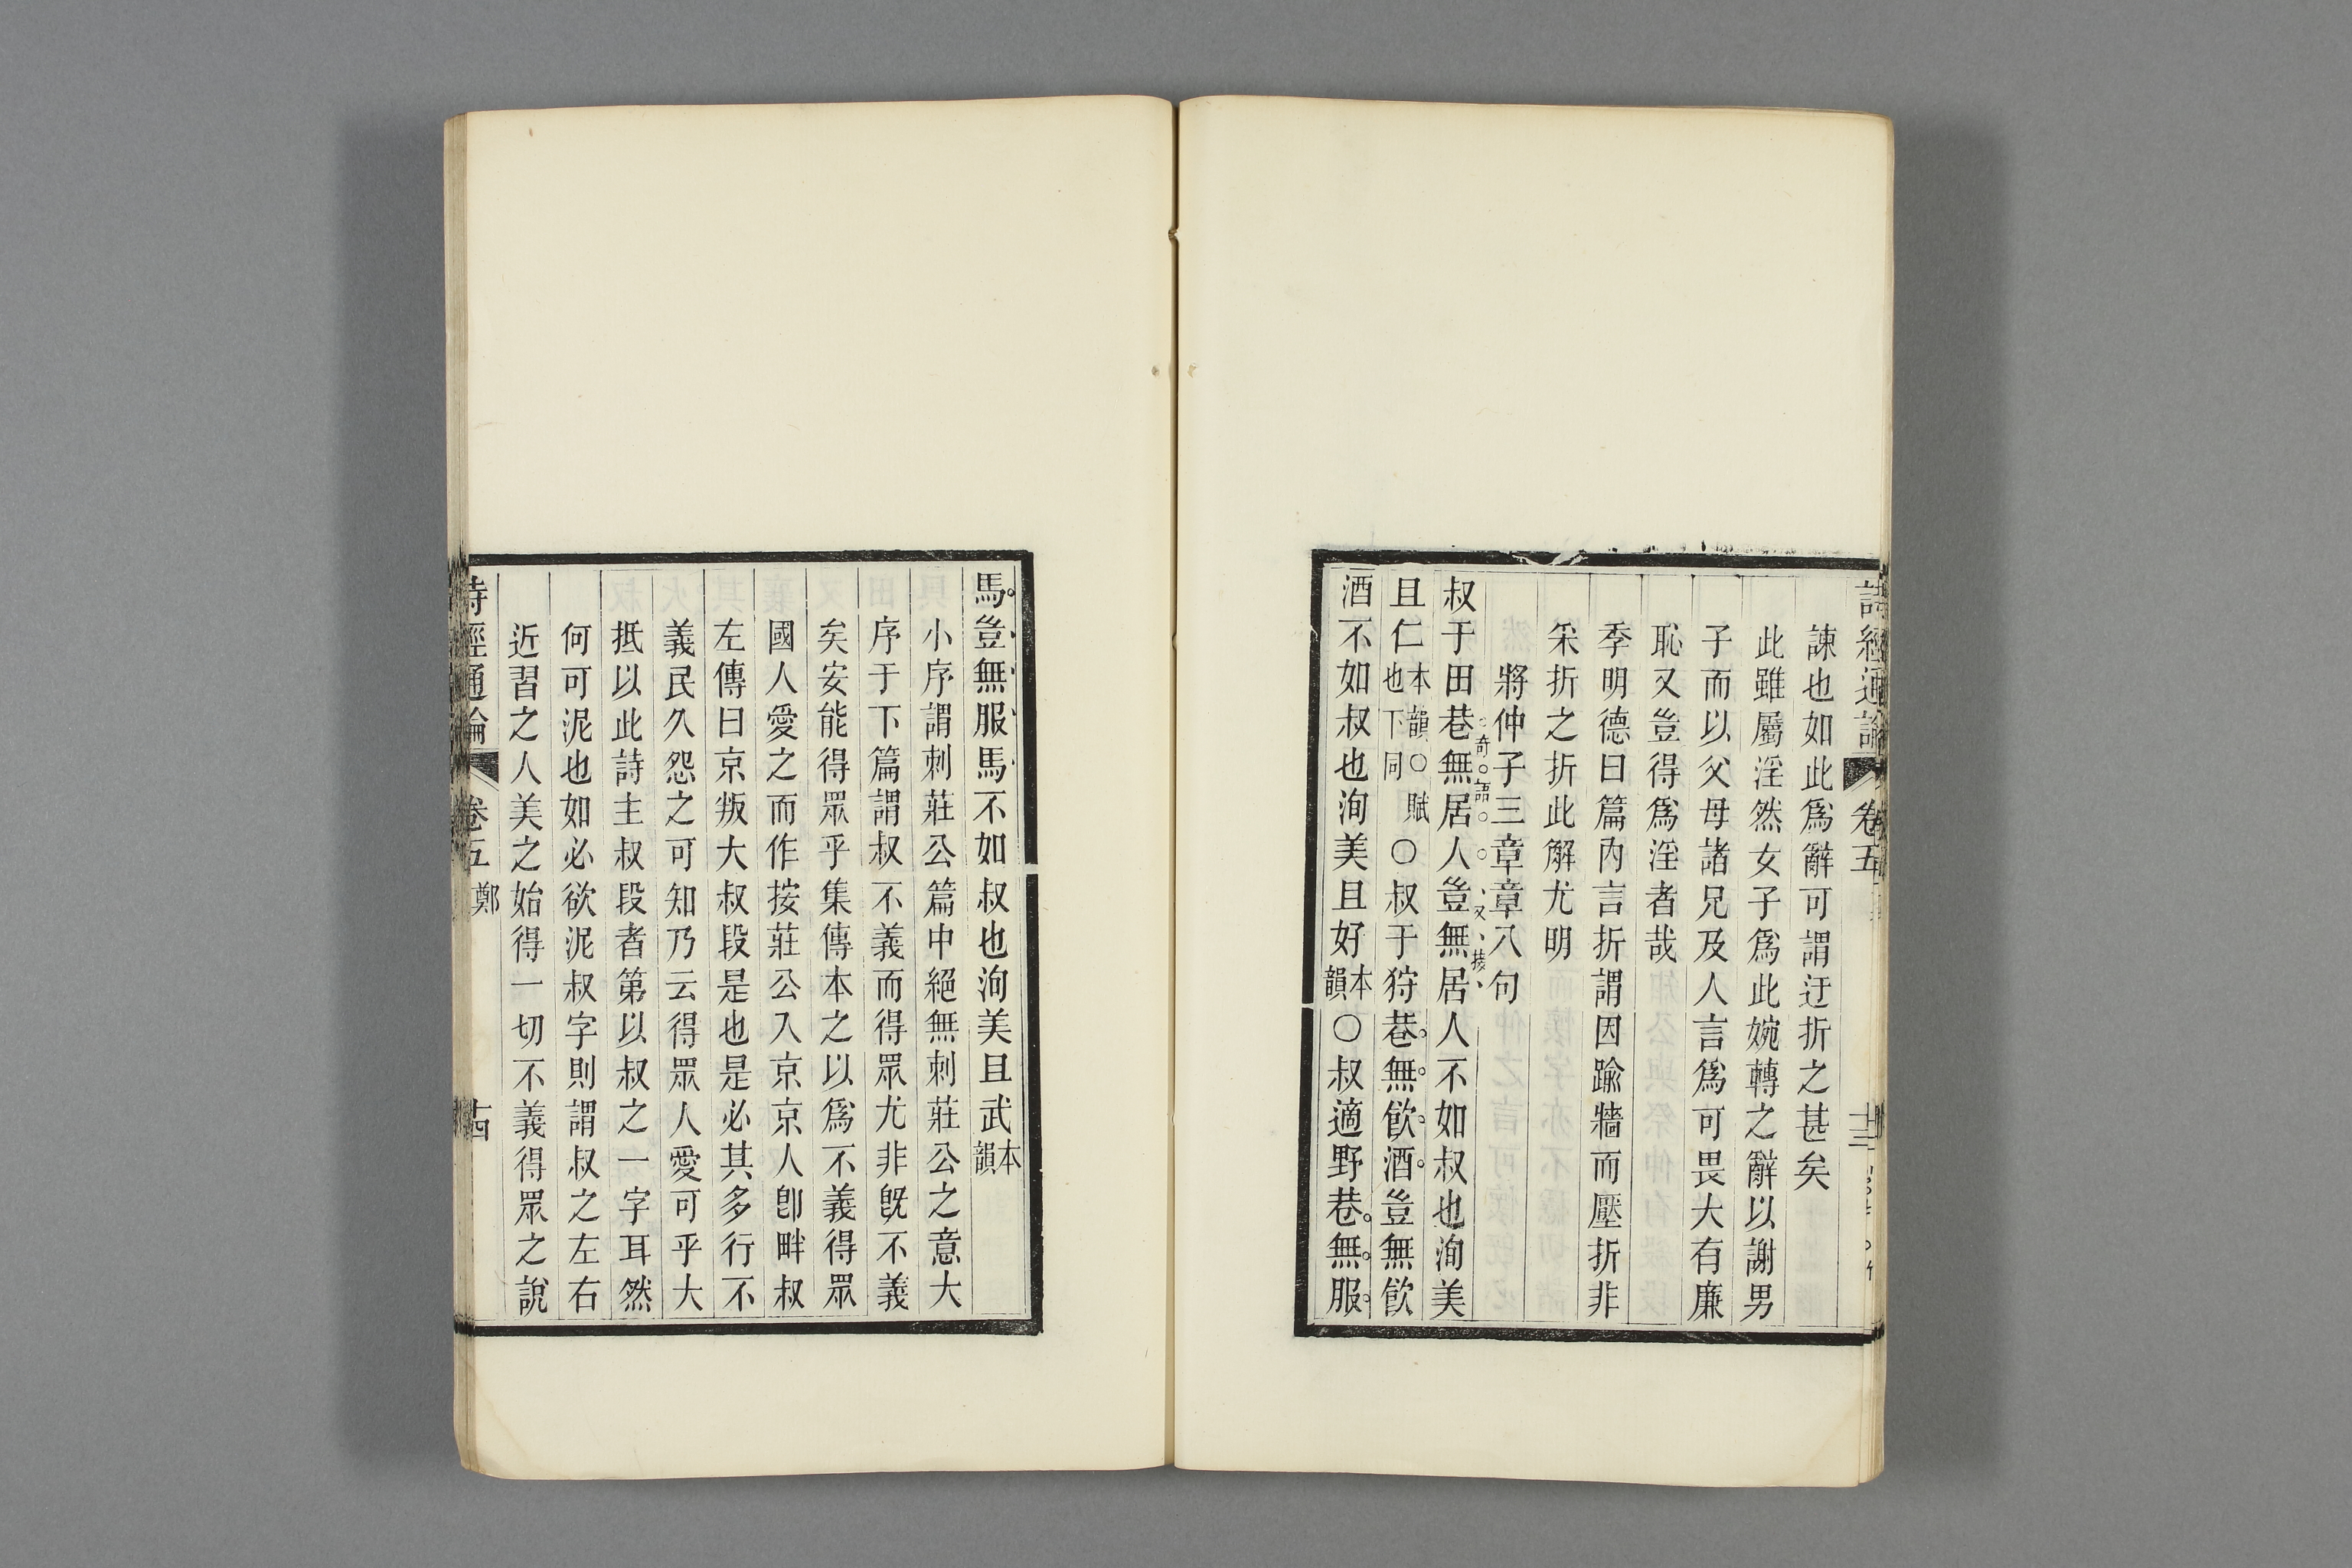 詩經通論 卷五 十三
諫也如此爲辭可謂迂折之甚矣
此雖屬淫然女子爲此婉轉之辭以謝男
子而以父母諸兄及人言爲可畏大有廉
恥又豈得爲淫者哉
季明德曰篇內言折謂因踰牆而壓折非
采折之折此解尤明
將仲子三章章八句
奇語 又接
叔于田巷無居人豈無居人不如叔也洵美
且仁本韻○賦也下同○叔于狩巷無飮酒豈無飮
酒不如叔也洵美且好本韻○叔適野巷無服
馬豈無服馬不如叔也洵美且武本韻
小序謂刺莊公篇中絕無刺莊公之意大
序于下篇謂叔不義而得眾尤非旣不義
矣安能得眾乎集傳本之以爲不義得眾
國人愛之而作按莊公入京京人卽畔叔
左傳曰京叛大叔段是也是必其多行不
義民久怨之可知乃云得眾人愛可乎大
抵以此詩主叔段者第以叔之一字耳然
何可泥也如必欲泥叔字則謂叔之左右
近習之人美之始得一切不義得眾之說
詩經通論 卷五 鄭 十四